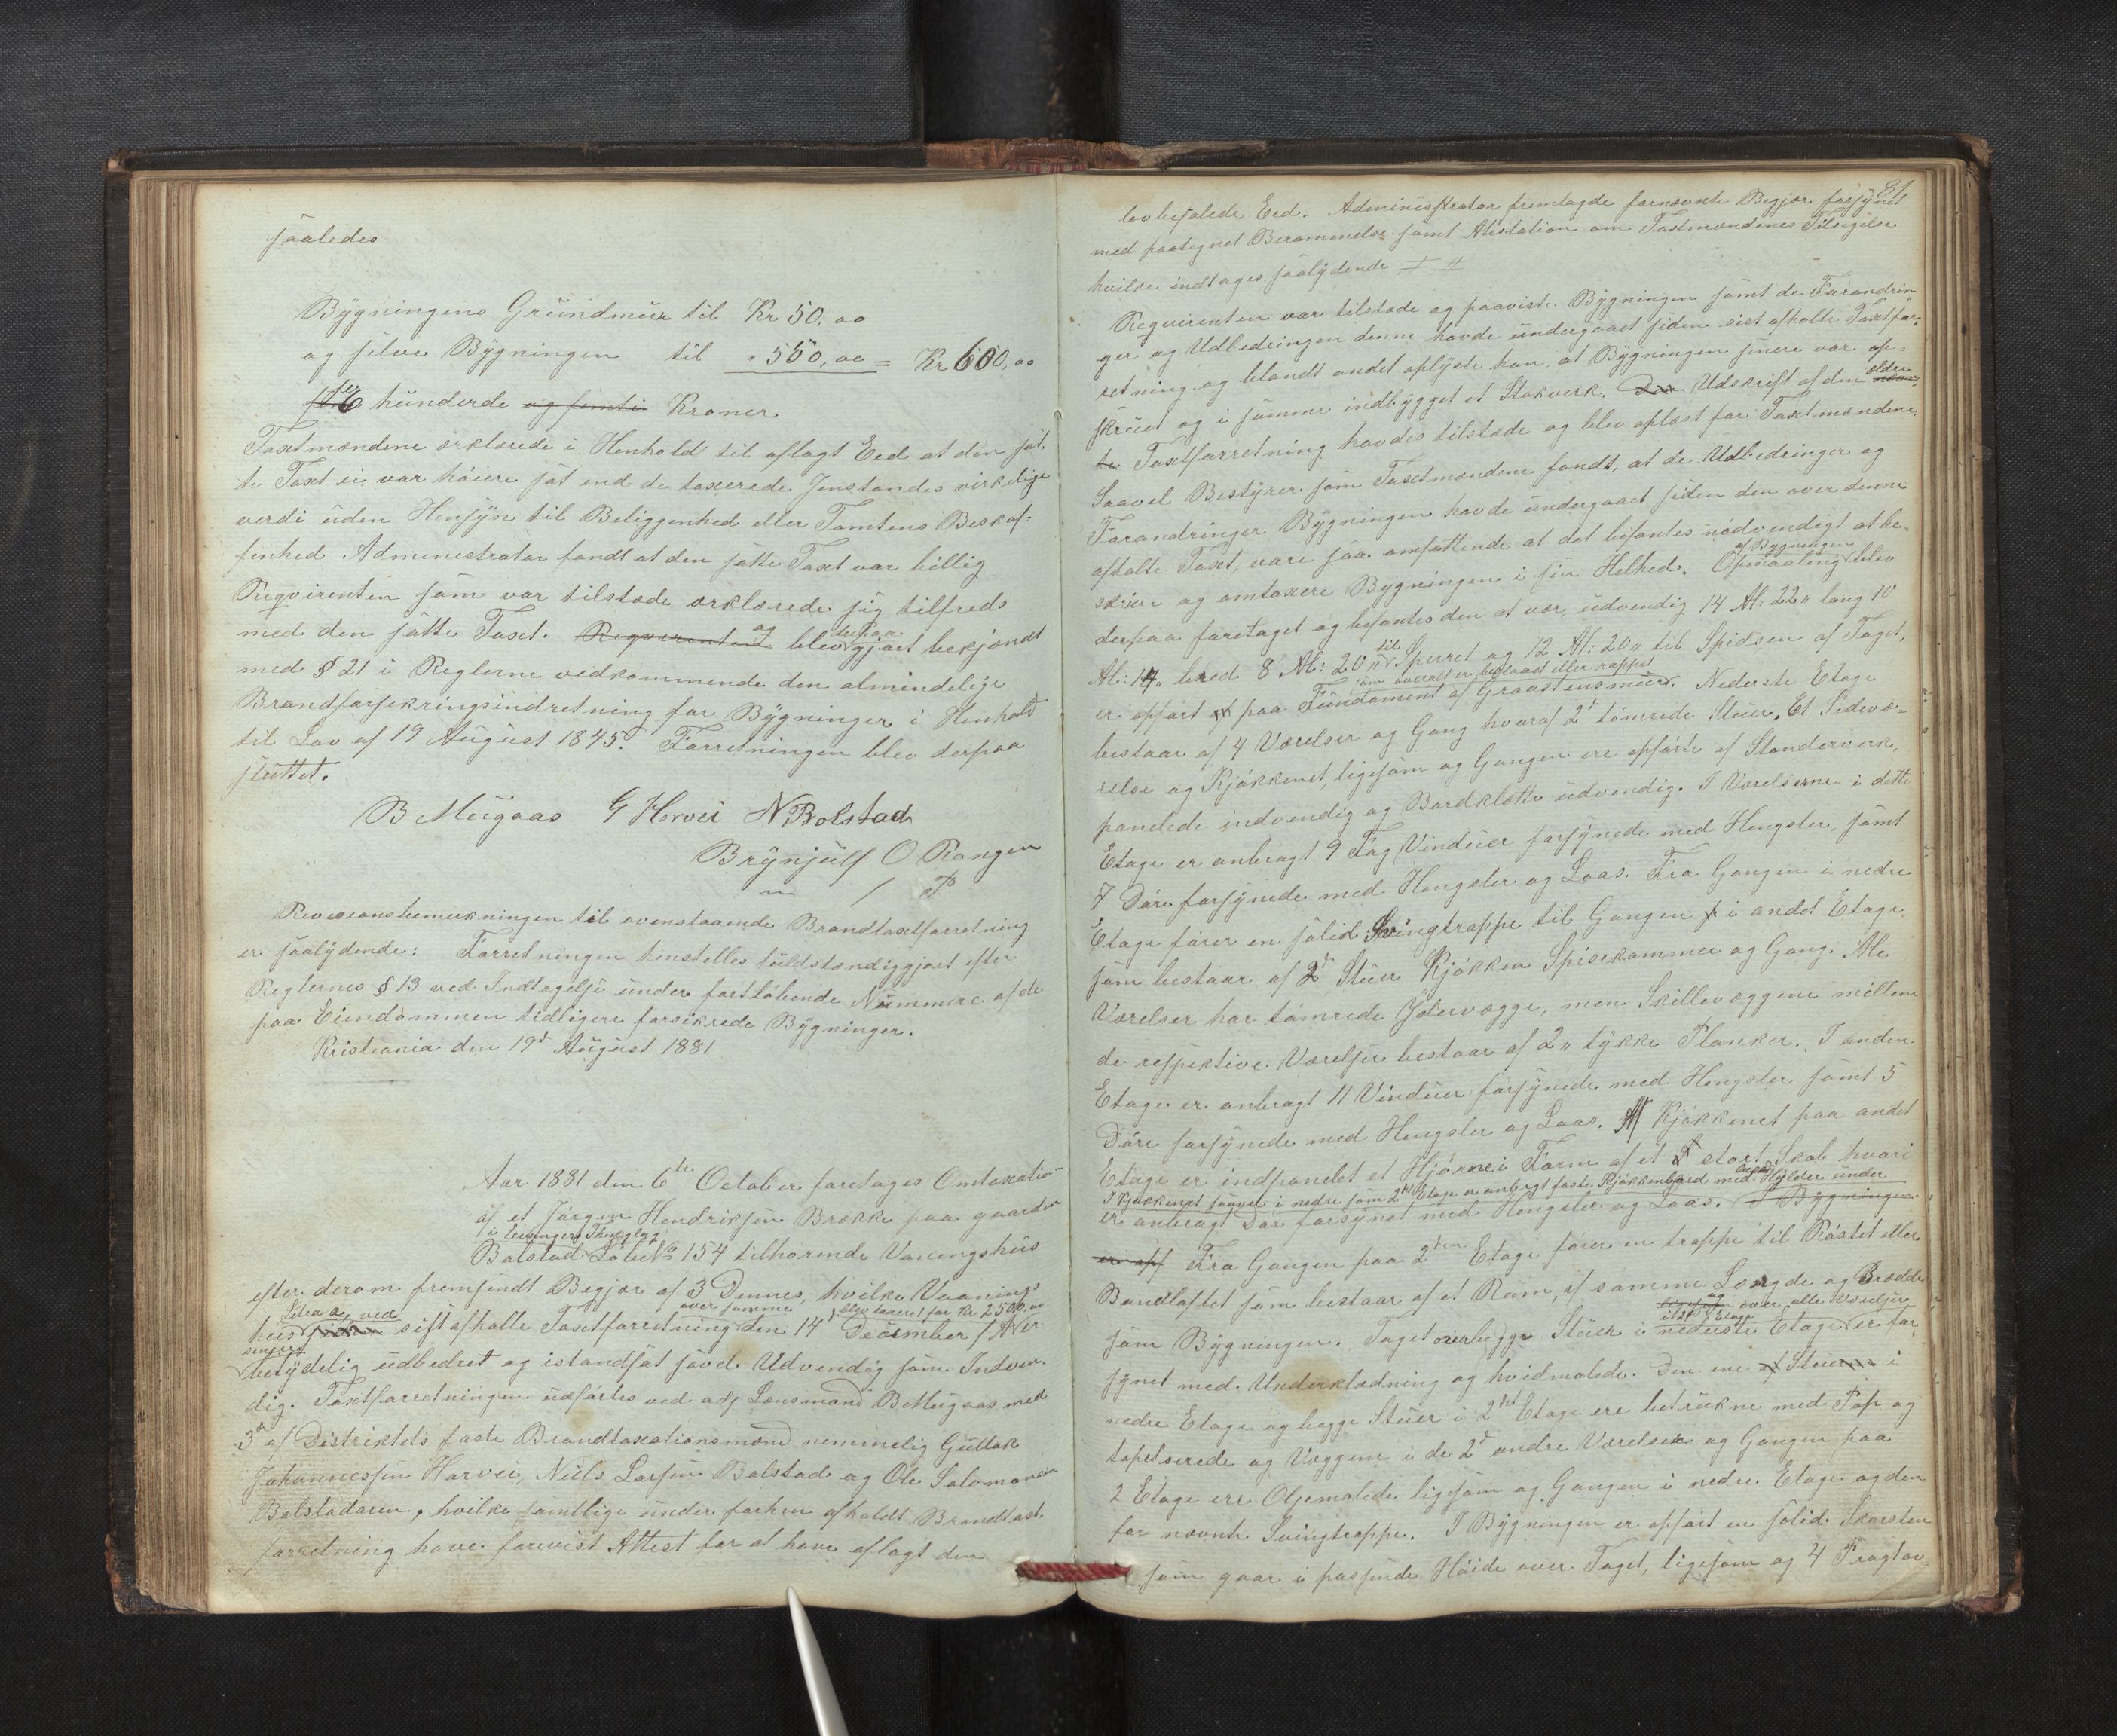 saaledes
Bygningens Grundmur til Kr 50,00
og selve Bygningen til " 550,00 = Kr 600,00
hundrede og femti Kroner
Taxtmændene erklærede i Henhold til aflagt Eed at den sat
te Taxt ei var høiere sat end de taxerede Jenstandes virkelige
verdi uden Hensyn til Beliggenhed eller Tomtens Beskaf-
fenhed Administrator fandt at den satte Taxt var billig
Reqvirenten som var tilstæde erklærede sig tilfreds
med den satte Taxt. Reqvirenten og blev derpaa gjort bekjendt
med § 21 i Reglerne vedkommende den almindelige
Brandforsikringsindretning for Bygninger i Henhold
til Lov af 19 August 1845. Forretningen blev derpaa
sluttet.
B Mugaas G Horvei N Bolstad
Brynjulf O Rongen
m / P
Revisionsbemerkningen til ovenstaaende Brandtaxtforretning
er saalydende: Forretningen henstelles fuldstændiggjort efter
Reglernes § 13 ved Indtagelse under fortløbende Nummere af de
paa Eiendommen tidligere forsikrede Bygninger.
Kristiania den 19de August 1881
Aar 1881 den 6te October foretoges Omtaxatio-
af et Jørgen Hendriksen Brække paa gaarden
i Evanger Thinglag
Bolstad Løbe No 154 tilhørende Vaaningshus
efter derom fremsendt Begjær af 3 Dennes, hvilke Vaanings
Litra a, ved over samme blev taxeret for Kr 2500,00
hus siden sist afholte Taxtforretning den 14 December f A er
senere
betydelig udbedret og istandsat savel Udvendig som Indven-
dig. Taxtforretningen udførtes ved adj Lensmand B Mugaas med
3de af Distriktets faste Brandtaxationsmænd nemmelig Gullak
Johannessen Horvei, Niels Larsen Bolstad og Ole Salomonsen
Bolstadøren, hvilke samtlige under forhen afholdt Brandtaxt
forretning have forevist Attest for at have aflagt den
81
lovbefalede Eed. Administrator fremlagde fornævnte Begjær forsynet
med paategnet Berammelse samt Atestation om Taxtmændenes Tilsigelse
hvilke indtages saalydende
Reqvirenten var tilstede og paaviste Bygningen samt de Forandrin
ger og Udbedringen denne havde undergaaet siden sist afholte Taxtfor-
retning og blandt andet oplyste han, at Bygningen senere var op-
skruet og i samme indbygget et Stokverk. Den Udskrift af den ældre
Taxtforretning havdes tilstede og blev oplæst for Taxtmændene,
Saavel Bestyrer som Taxtmændene fandt, at de Udbedringer og
Forandringer Bygningen havde undergaaet siden den over denne
afholte Taxt, vare saa omfattende at det befantes nødvendigt at be-
skrive og omtaxere Bygningen i sin Helhed. Opmaaling af Bygningen blev
derpaa foretaget og befantes den at være udvendig 14 Al: 22" lang 10
Al: 14" bred 8 Al: 20" til Sperret og 12 Al: 20" til Spidsen af Taget,
som overalt er beslaaet eller rappet
er opført paa Fundament af Graastensmur. Nederste Etage
bestaar af 4 Værelser og Gang hvoraf 2de tømrede Stuer, Et Sidevæ-
relse og Kjøkkenet, ligesom og Gangen ere opførte af Standerverk,
panelede indvendig og Bordklætte udvendig. I Værelserne i dette
Etage er anbragt 9 Fag Vinduer forsynede med Hengsler, samt
7 Døre forsynede med Hengsler og Laas. Fra Gangen i nedre
Etage fører en solid Svingtrappe til Gangen i andet Etage
som bestaar af 2de Stuer Kjøkken Spisekammer og Gang. Ale
Værelser har tømrede Ydervægge, men Skillevæggene mellem
de respektive Værelser bestaar af 2" tykke Planker. I anden
Etage er anbragt 11 Vinduer forsynede med Hengsler samt 5
Døre forsynede med Hengsler og Laas. Af Kjøkkenet paa andet
Etage er indpanelet et Hjørne i Form af et stort Skab hvori
I Kjøkkenet saavel i nedre som 2det Etage er anbragt faste Kjøkkenbord med Hylder under
er anbragt Dør forsynet med Hengsler og Laas. I Bygningen
er opf Fra Gangen paa 2den Etage fører en trappe til Røstet eller
Bandloftet som bestaar af et Rum, af samme Længde og Bredde
som Bygningen. Taget over begge Stuer i nederste Etage og over alle Værelser i 2det Etage er for
synet med Underklædning og hvidmalede. Den ene Stue i
nedre Etage og begge Stuer i 2det Etage ere betrukne med Pap og
tapetserede og Væggene i de 2de andre Værelser og Gangen paa
2 Etage ere Oljemalede ligesom og Gangen i nedre Etage og den
før nævnte Svingtrappe. I Bygningen er opført en solid Skorsten
som gaar i passende Høide over Taget, ligesom og 4 Fragtov